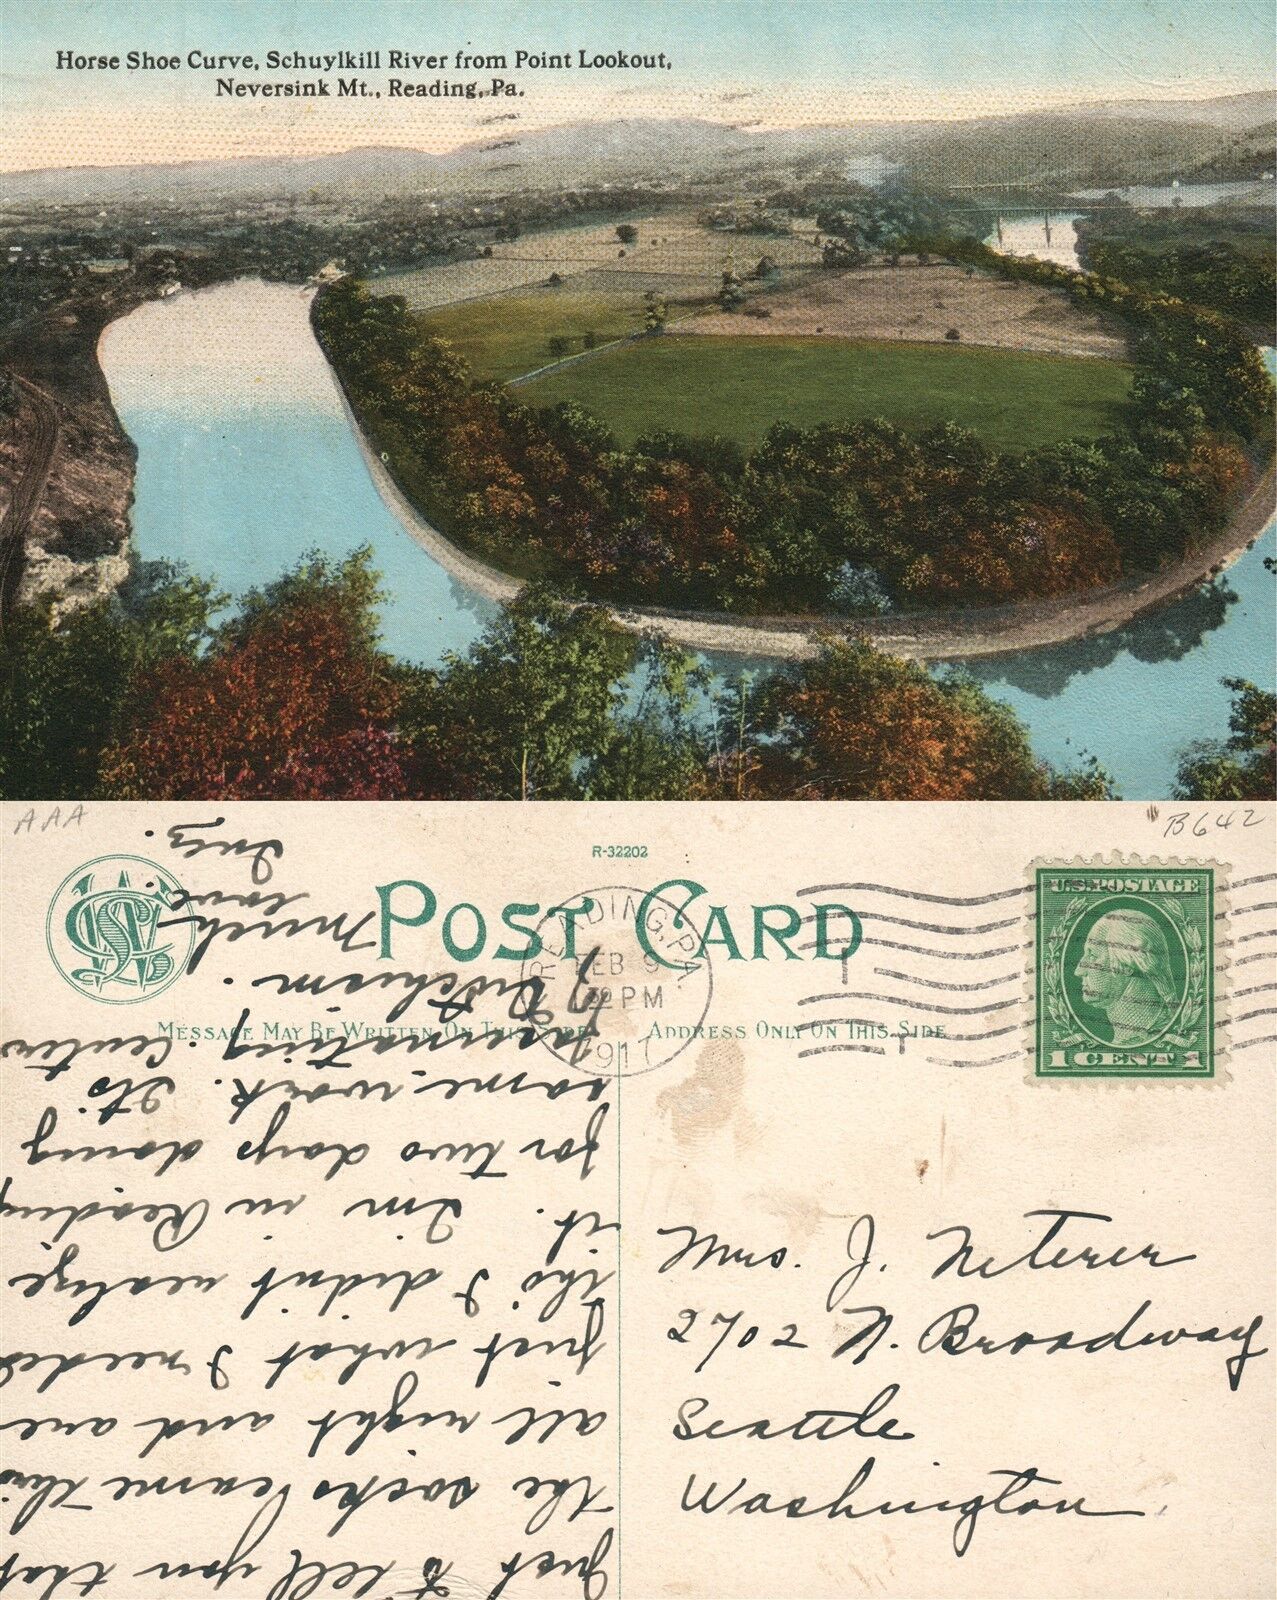 Horse Shoe Curve, Schuylkill River from Point Lookout,
Neversink Mt., Reading, Pa.
AAA
B642
R-32202
POST CARD
MESSAGE MAY BE WRITTEN ON THIS SIDE
ADDRESS ONLY ON THIS SIDE
READING, PA.
FEB 9
PM
1917
U.S. POSTAGE
1 CENT 1
Mrs. J. Neterer
2702 N. Broadway
Seattle
Washington
Just to tell you that
the socks came thru
all right and are
just what I needed
tho I didn't realize
it. I'm in Reading
for two days doing
some work. Its
fascinating. Center
Much
love.
Inez.